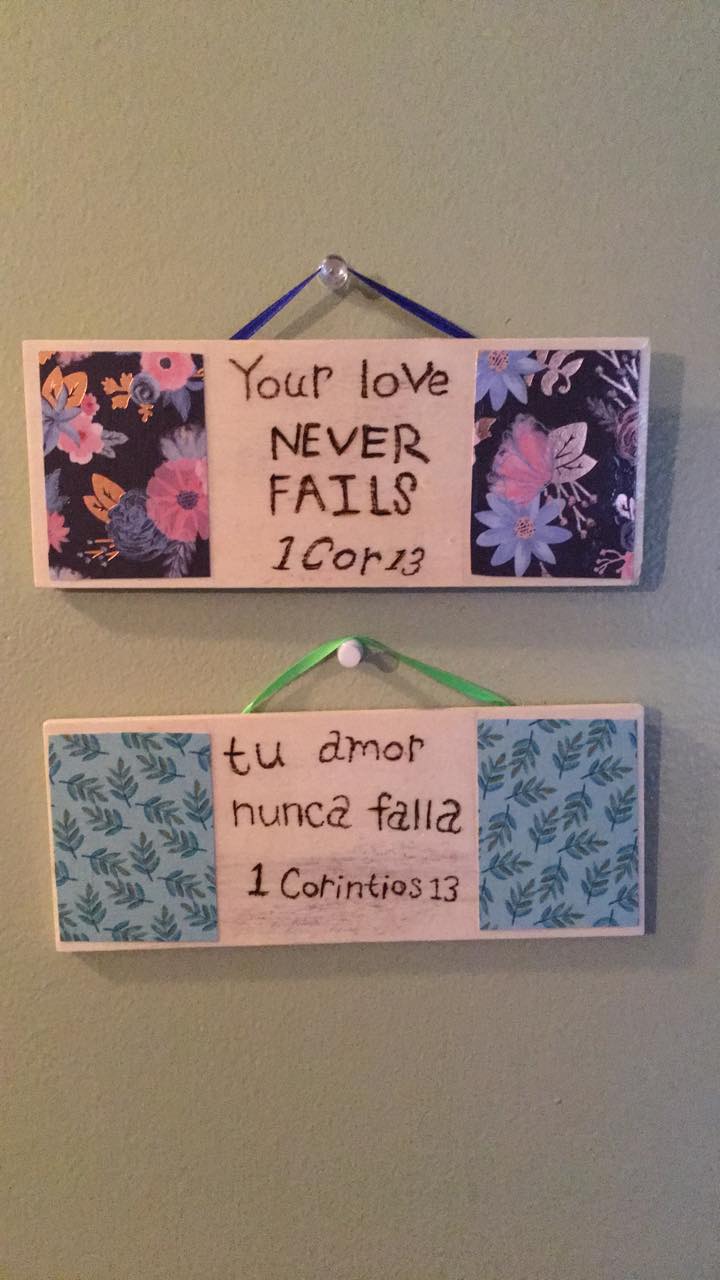 Your love
NEVER
FAILS
1 Cor 13
tu amor
nunca falla
1 Corintios 13